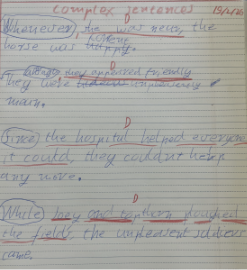 Complex sentences
D
Whenever, he was near, the
horse was happy.
D
Although they appeared friendly
They were
mean.
D
Since the hospital helped everyone
it could, they couldn't help
any more.
D
While they and ploughed
the fields, the unpleasent soldiers
came.